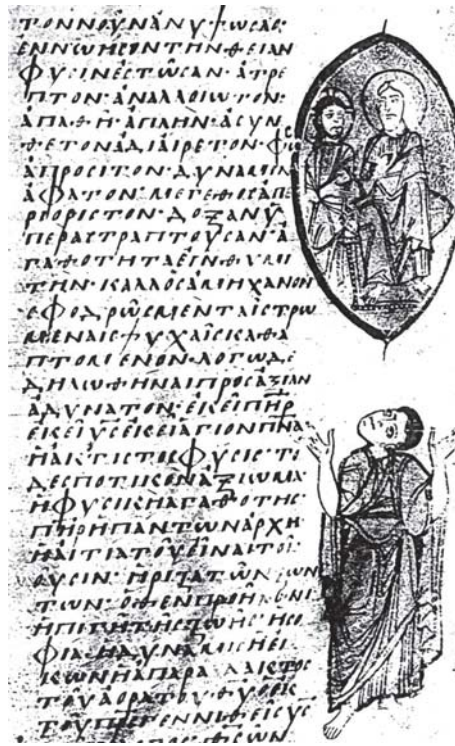 ΤΟΝ ΝΟΥΝ ΑΝΥΨΩΣΑΣ·
ΕΝΝΟΗΣΟΝ ΤΗΝ ΘΕΙΑΝ
ΦΥΣΙΝ ΕΣΤΩΣΑΝ· ΑΤΡΕ
ΠΤΟΝ· ΑΝΑΛΛΟΙΩΤΟΝ·
ΑΠΑΘΗ· ΑΠΛΗΝ· ΑΣΥΝ
ΘΕΤΟΝ ΑΔΙΑΙΡΕΤΟΝ· ΦΩΣ
ΑΠΡΟΣΙΤΟΝ· ΔΥΝΑΜΙΝ
ΑΦΑΤΟΝ· ΜΕΓΕΘΟΣ ΑΠΕ
ΡΙΟΡΙΣΤΟΝ· ΔΟΞΑΝ Υ
ΠΕΡΑΣΤΡΑΠΤΟΥΣΑΝ· Α
ΓΑΘΟΤΗΤΑ ΕΠΙΘΥΜΗ
ΤΗΝ· ΚΑΛΛΟΣ ΑΜΗΧΑΝΟΝ
ΣΦΟΔΡΩΣ ΜΕΝ ΤΑΙΣ ΤΡΩ
ΜΕΝΑΙΣ ΨΥΧΑΙΣ ΚΑΘΑ
ΠΤΟΜΕΝΟΝ· ΛΟΓΩ ΔΕ
ΔΗΛΩΘΗΝΑΙ ΠΡΟΣ ΑΞΙΑΝ
ΑΔΥΝΑΤΟΝ· ΕΚΕΙ ΠΗΡ
ΕΚΕΙ ΥΣ ΕΚΕΙ ΑΓΙΟΝ ΠΝΑ
Η ΑΚΤΙΣΤΟΣ ΦΥΣΙΣ· ΤΟ
ΔΕΣΠΟΤΙΚΟΝ ΑΞΙΩΜΑ
Η ΦΥΣΙΚΗ ΑΓΑΘΟΤΗΣ
ΠΗΡ Η ΠΑΝΤΩΝ ΑΡΧΗ
Η ΑΙΤΙΑ ΤΟΥ ΕΙΝΑΙ ΤΟΙΣ
ΟΥΣΙΝ· Η ΡΙΖΑ ΤΩΝ ΖΩΝ
ΤΩΝ· ΟΘΕΝ ΠΡΟΗΛΘΕΝ
Η ΠΗΓΗ ΤΗΣ ΖΩΗΣ· Η ΣΟ
ΦΙΑ· Η ΔΥΝΑΜΙΣ Η ΕΙ
ΚΩΝ Η ΑΠΑΡΑΛΛΑΚΤΟΣ
ΤΟΥ ΑΟΡΑΤΟΥ ΘΥ Ο ΕΚ
ΤΟΥ ΠΡΣ ΓΕΝΝΗΘΕΙΣ ΥΣ